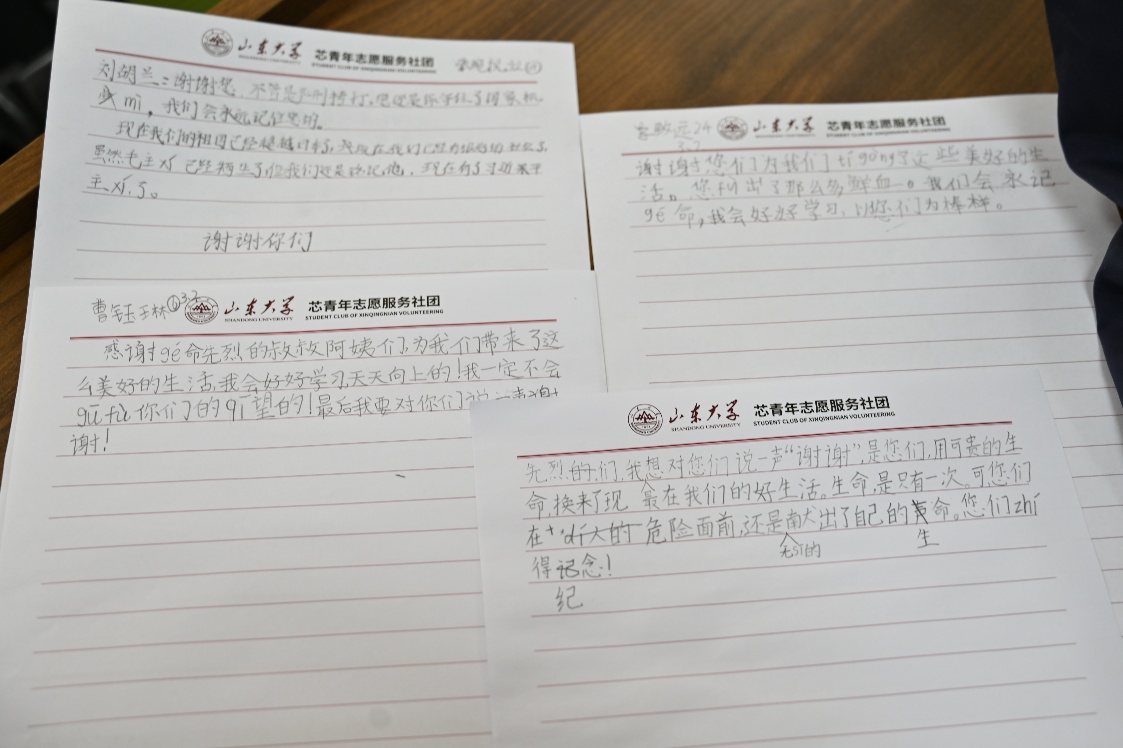 山东大学
芯青年志愿服务社团
STUDENT CLUB OF XINQINGNIAN VOLUNTEERING
刘胡兰:谢谢您 不管是 你
mì,我们会永远记住您的。
现在我们的祖国已经超越日本了,
虽然毛主xí 已经 了,但我们还是 记他,现在有了习近平
主xí.了。
谢谢你们
山东大学
芯青年志愿服务社团
STUDENT CLUB OF XINQINGNIAN VOLUNTEERING
谢谢您们为我们tígòng了这些美好的生
活。您付出了那么多鲜血。我们会永记
gé命,我会好好学习、以您们为榜样。
曹钰
山东大学
SHANDONG UNIVERSITY
芯青年志愿服务社团
STUDENT CLUB OF XINQINGNIAN VOLUNTEERING
感谢gé命先烈的叔叔阿姨们,为我们带来了这
么美好的生活,我会好好学习,天天向上的!我一定不会
gūfù你们的qī望的!最后我要对你们说一声谢
谢!
山东大学
SHANDONG UNIVERSITY
芯青年志愿服务社团
STUDENT CLUB OF XINQINGNIAN VOLUNTEERING
先烈的们,我想对您们说一声“谢谢”,是您们,用可贵的生
命,换来了现 在我们的好生活。生命,是只有一次。可您们
在 大的 危险面前,还是献出了自己的 命。您们zhí
生
得记念!
纪